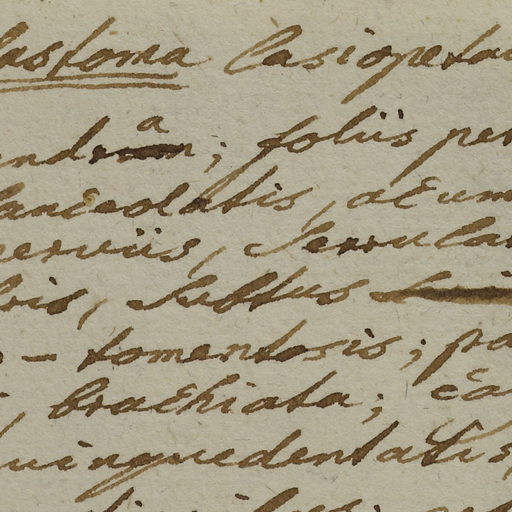 lastoma Casiopeta
andra; foliis per
lanceolatis, acum
nerviis, serrula
bris, subtus
- tomentosis; pa
brachiata; ca
uinquedentatis,